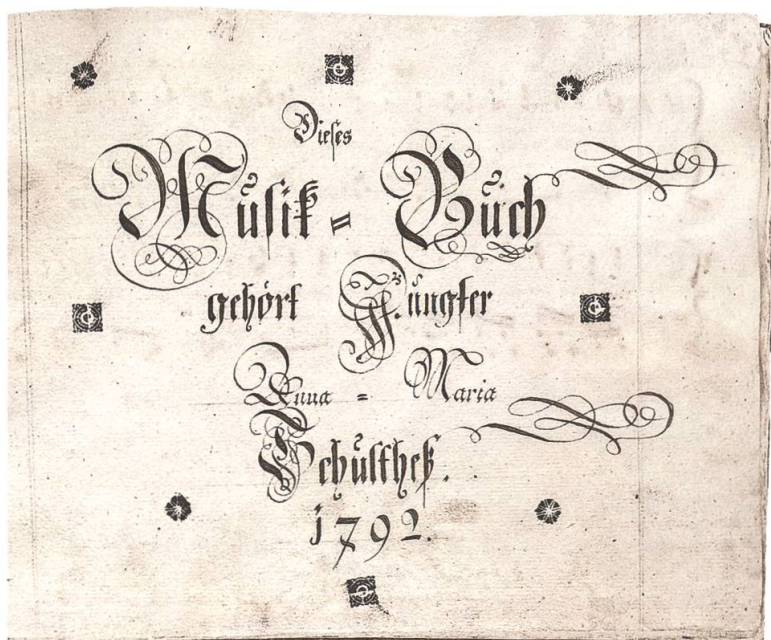 Dieses
Musik = Buch
gehört Jungfer
Anna = Maria
Schultheß.
1792.